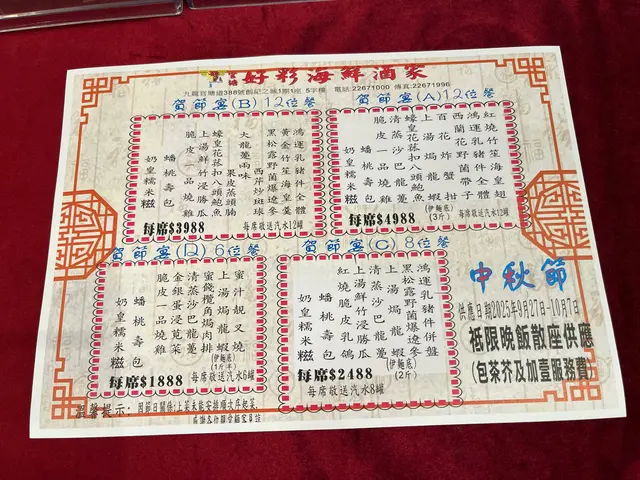 好彩海鮮酒家
九龍官塘道388號創紀之城1期1座5字樓 電話:22671000 傳真:22671996
賀節宴(B)12位餐
鴻運乳豬件全體
黃金竹笙海皇羹
黑松露野菌爆遼參
西芹炒斑球
大龍躉兩味
果皮蒸頭腩
蠔皇花菇扣八頭鮑魚
上湯鮮竹浸勝瓜
脆皮一品燒雞
蟠桃壽包
奶皇糯米糍
每席$3988
每席敬送汽水12罐
賀節宴(A)12位餐
紅燒竹笙海皇翅
鴻運乳豬件全體
西蘭花帶子
百花炸蟹拑
上湯焗龍蝦
(伊麵底)
(3斤)
蠔皇花菇扣八頭鮑
清蒸沙巴龍躉
脆皮一品燒雞
蟠桃壽包
奶皇糯米糍
每席$4988
每席敬送汽水12罐
賀節宴(D)6位餐
蜜汁靚叉燒
上湯焗龍蝦
(伊麵底)
(1斤半)
蜜餞欖角焗肉排
清蒸沙巴龍躉
金銀蛋浸莧菜
脆皮一品燒雞
蟠桃壽包
奶皇糯米糍
每席$1888
每席敬送汽水6罐
賀節宴(C)8位餐
鴻運乳豬件併盤
黑松露野菌爆遼參
上湯焗龍蝦
(伊麵底)
(2斤)
清蒸沙巴龍躉
上湯鮮竹浸勝瓜
紅燒脆皮乳鴿
蟠桃壽包
奶皇糯米糍
每席$2488
每席敬送汽水8罐
中秋節
供應日期2025年9月27日-10月7日
祗限晚飯散座供應
(包茶芥及加壹服務費)
溫馨提示:因節日關係上菜未能安排順次序起菜,